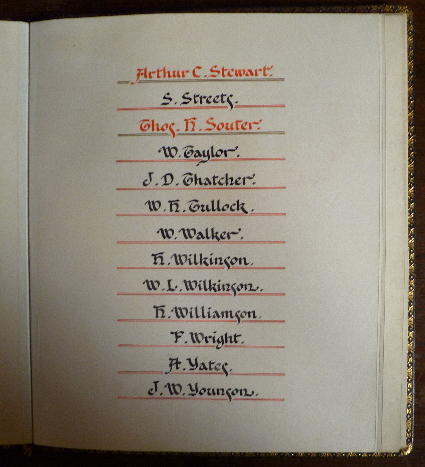 Arthur C. Stewart.
S. Streets.
Thos. H. Souter.
W. Taylor.
J. D. Thatcher.
W. H. Tullock.
W. Walker.
H. Wilkinson.
W. L. Wilkinson.
H. Williamson.
F. Wright.
A. Yates.
J. W. Younson.